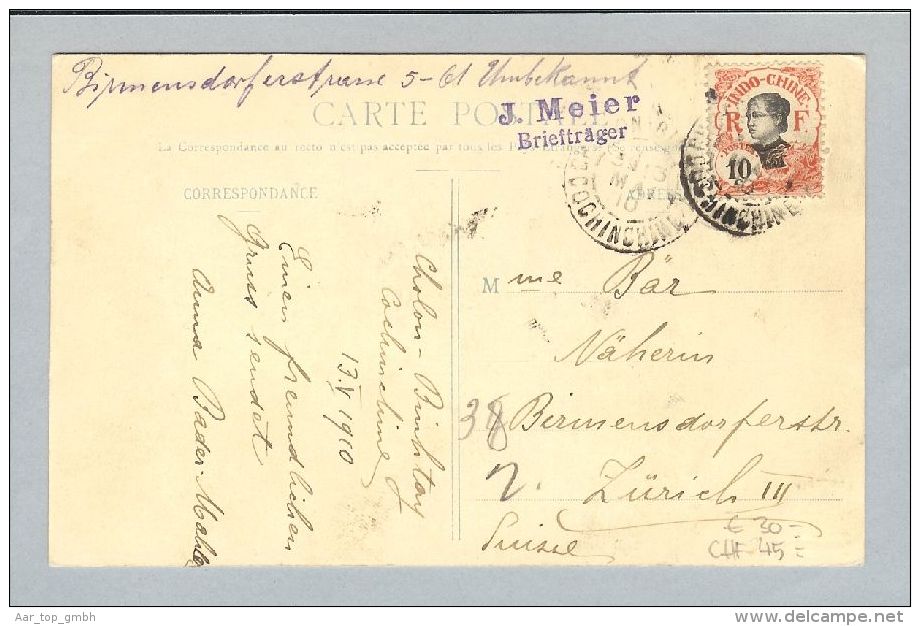 Birmensdorferstrasse 5-61 Unbekannt
CARTE POSTALE
J. Meier
Briefträger
La Correspondance au recto n'est pas acceptée par tous les Pays
CORRESPONDANCE
INDO-CHINE
R F
POSTES
10
COCHINCHINE
COCHINCHINE
Cholon-Binhtay
Cochinchine
13.V 1910
Einen freundlichen
Gruss sendet
Anna Bader-
Mme Bär
Näherin
38 Birmensdorferstr.
Zürich III
Suisse
€ 30-
CHF 45=
Aar_top_gmbh
delcampe.net